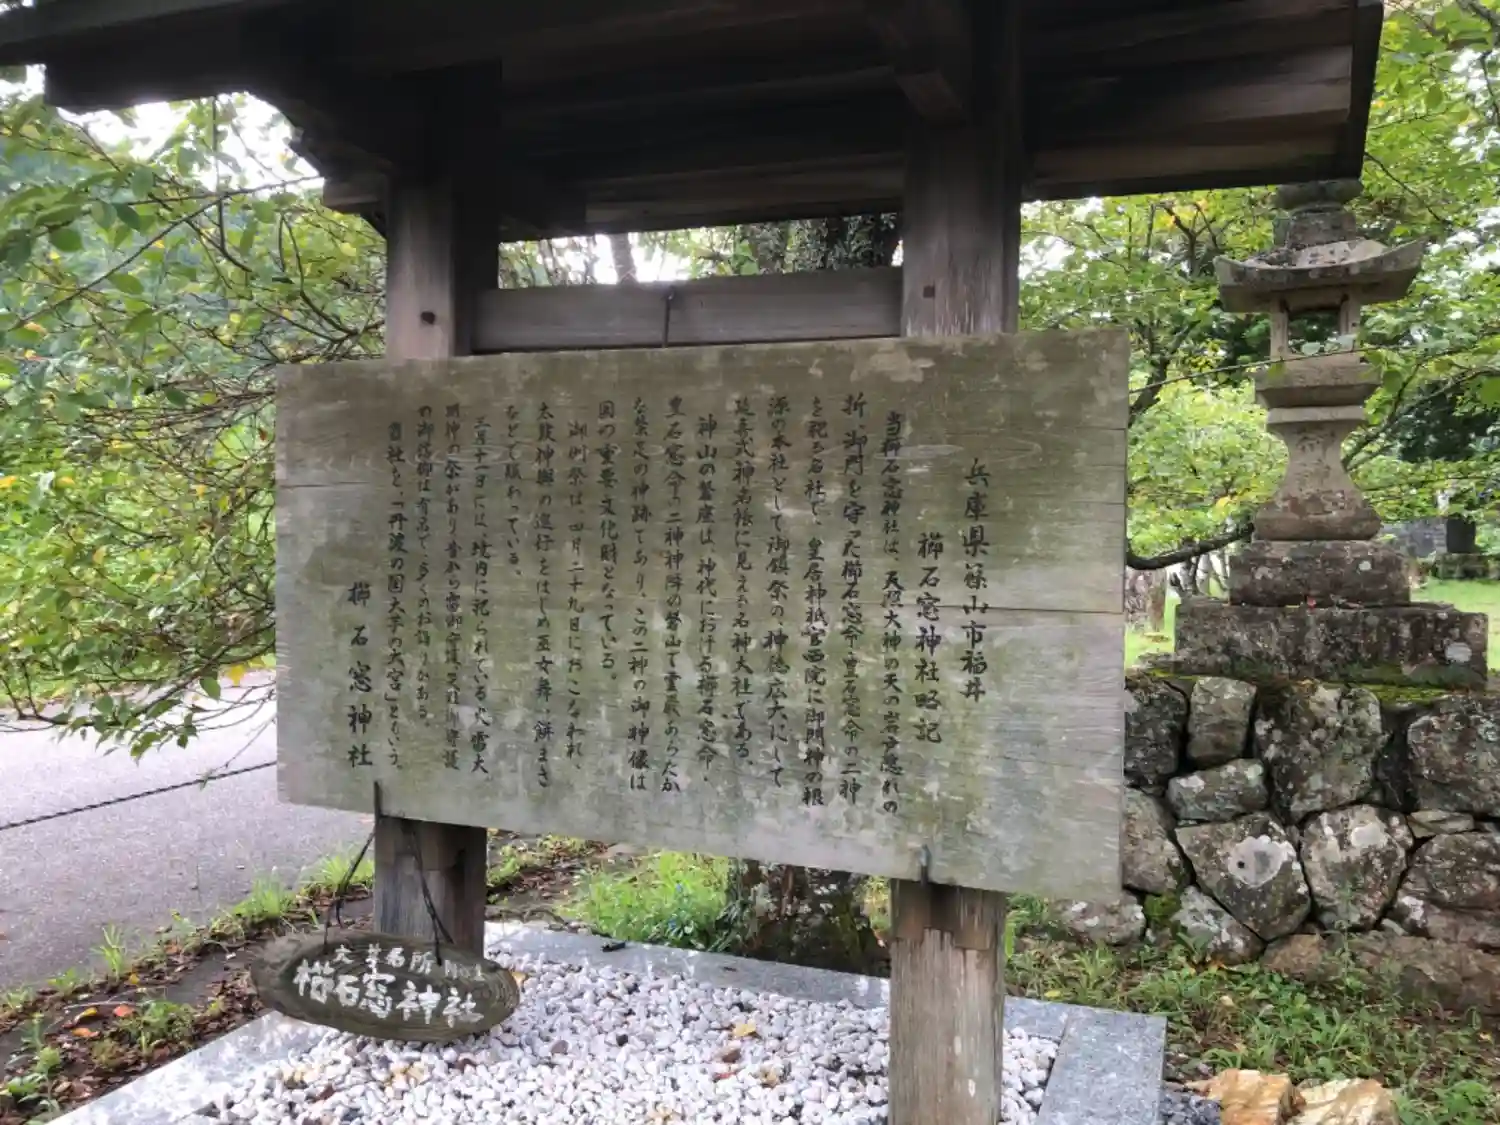 兵庫県篠山市福井
櫛石窓神社略記
当櫛石窓神社は、天照大神の天の岩戸隠れの
折、御門を守った櫛石窓命豊石窓命の二神
を祀る古社で、皇居神祇官西院に御門神の根
源の本社として御鎮祭の、神徳広大にして
延喜式神名帳に見える名神大社である。
神山の磐座は、神代における櫛石窓命・
豊石窓命の二神神降の磐山で霊厳あらたか
な禁足の神跡であり、この二神の御神像は
国の重要文化財となっている。
御例祭は、四月二十九日におこなわれ、
太鼓神輿の進行をはじめ巫女舞、餅まき
などで賑わっている。
三月十一日には、境内に祀られている火雷大
明神の祭があり昔から雷御守護
の御信仰は有名で、多くのお詣りがある。
当社を、「丹波の国大芋の大宮」ともいう。
櫛石窓神社
大芋名所
櫛石窓神社